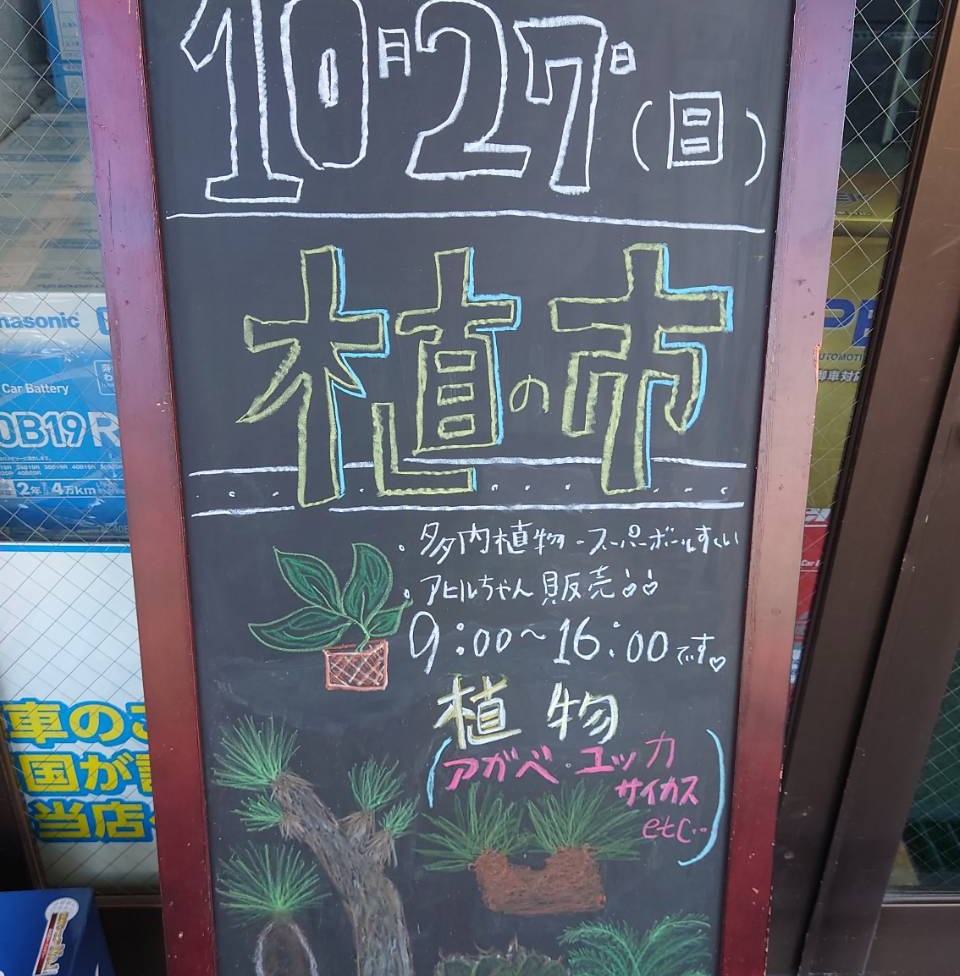 10月27日(日)
植の市
・多内植物・スーパーボールすくい
・アヒルちゃん販売♪♪
9:00~16:00です♡
植物
(アガベ・ユッカ
サイカス
etc..)
nasonic
Car Battery
0B19R
2年 4万km
車のこ
国が
当店